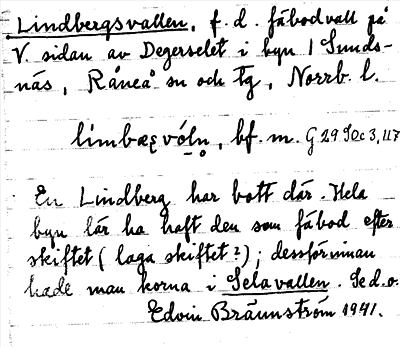 Lindbergsvallen, f.d. fäbodvall på
V. sidan av Degerselet i byn Sunds-
näs, Råneå sn och tg, Norrb. l.
bf. m. G 29 Dec 3, 117
En Lindberg har bott där. Hela
byn lär ha haft den som fäbod efter
skiftet (laga skiftet?); dessförinnan
hade man korna i Selavallen. Se d.o.
Edvin Brännström 1941.